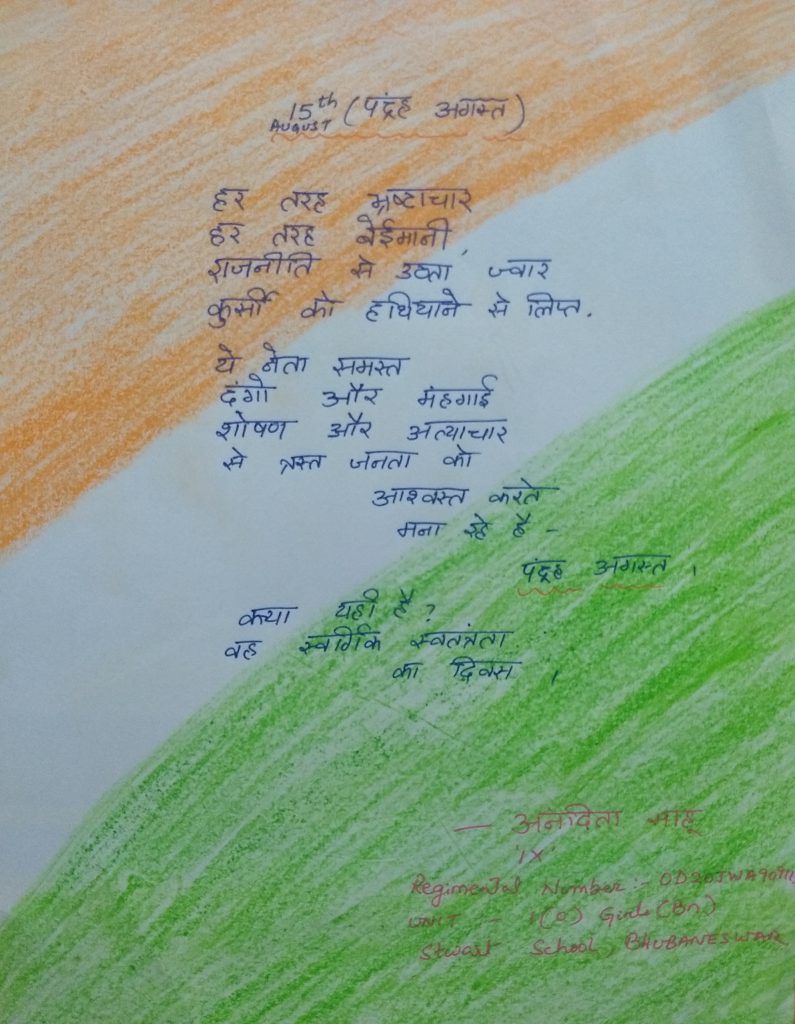 15th AUGUST (पंद्रह अगस्त)
हर तरह भ्रष्टाचार
हर तरह बेईमानी,
राजनीति से उठता ज्वार
कुर्सी को हथियाने से लिप्त.
ये नेता समस्त
दंगो और मंहगाई
शोषण और अत्याचार
से त्रस्त जनता को
आश्वस्त करते
मना रहे है -
पंद्रह अगस्त ।
क्या यही है ?
वह स्वर्गिक स्वतंत्रता
का दिवस ।
— साहू
IX
Regimental Number :-
UNIT - 1(O) Girls (Bn)
Stwart School, BHUBANESWAR